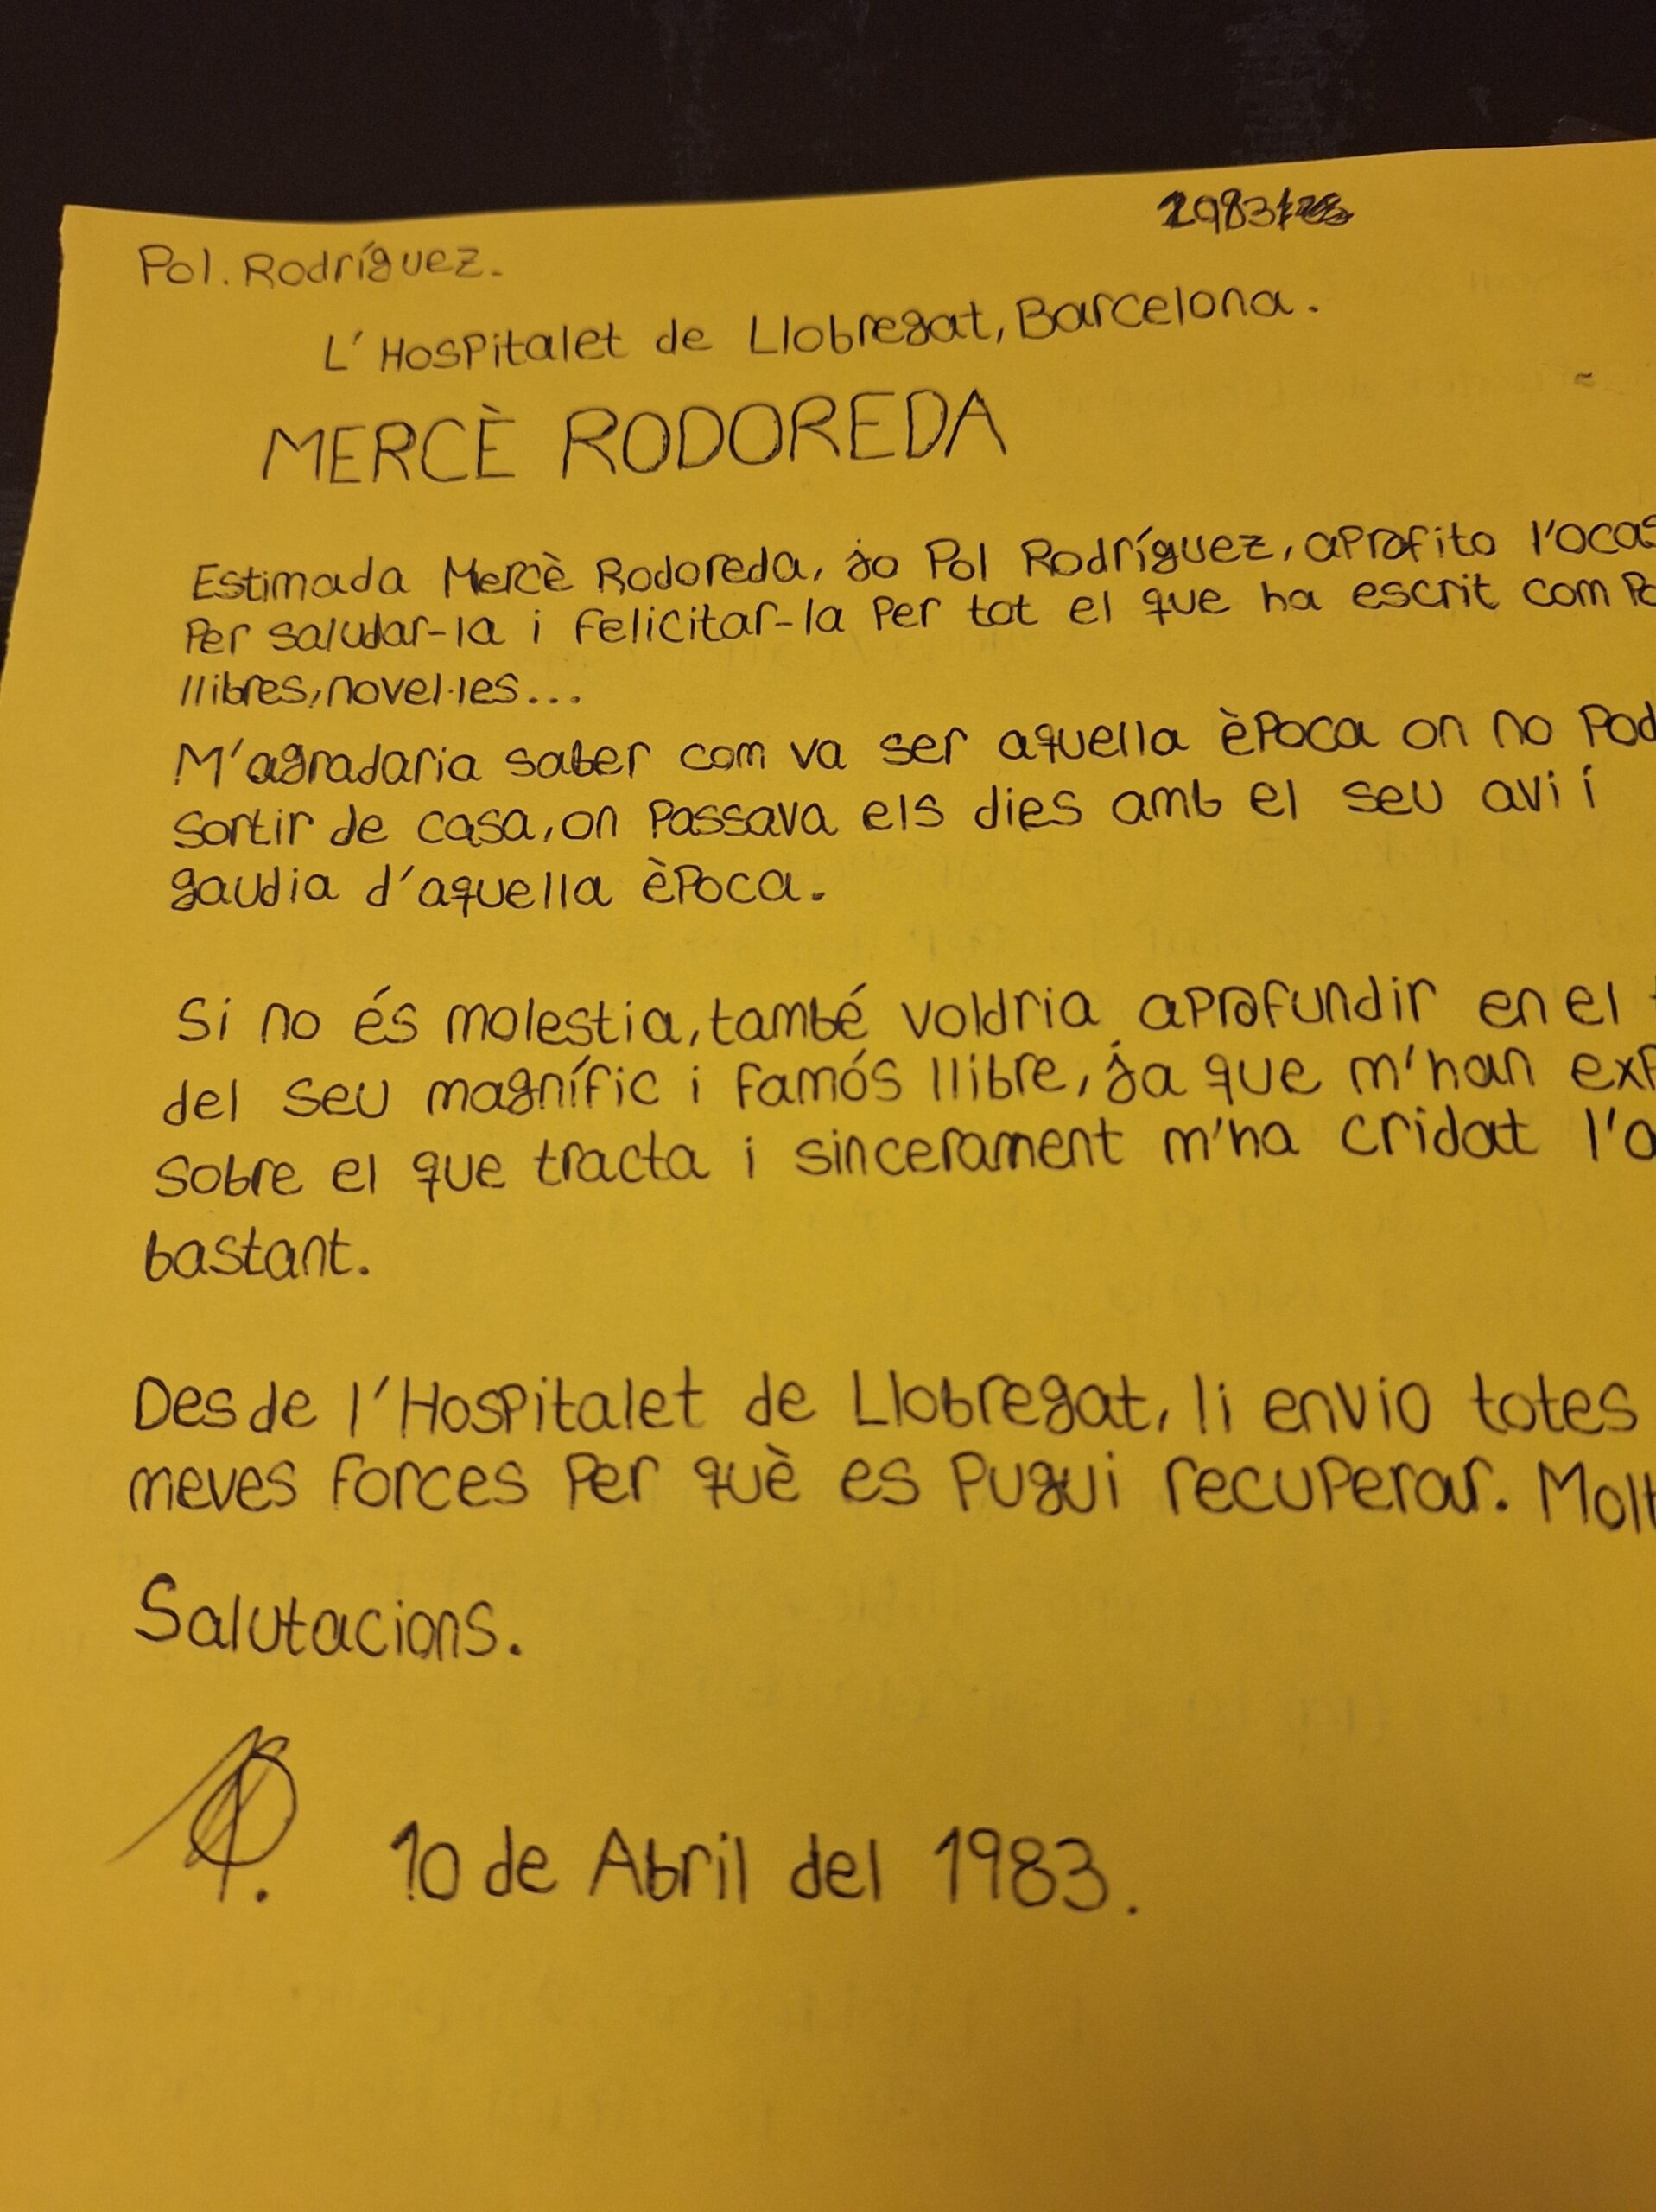 1983
Pol. Rodríguez.
L'Hospitalet de Llobregat, Barcelona.
MERCÈ RODOREDA
Estimada Mercè Rodoreda, jo Pol Rodríguez, aprofito l'ocas
Per saludar-la i felicitar-la Per tot el que ha escrit com Po
llibres, novel·les...
M'agradaria saber com va ser aquella època on no Pod
sortir de casa, on Passava els dies amb el seu avi i
gaudia d'aquella època.
Si no és molestia, també voldria aprofundir en el
del seu magnífic i famós llibre, ja que m'han exp
sobre el que tracta i sincerament m'ha cridat l'a
bastant.
Desde l'Hospitalet de Llobregat, li envio totes
meves forces Per què es Pugui recuperar. Molt
Salutacions.
10 de Abril del 1983.